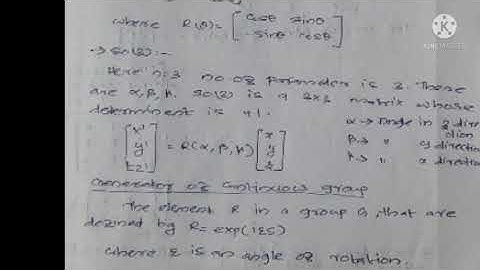 where R(θ) = [cosθ sinθ
-sinθ cosθ]
→ SO(3) :-
Here n=3 no of parameter is 3. These
are α, β, γ. SO(3) is a 3x3 matrix whose
determinant is +1.
α → Angle in z direction
[x' y' z'] = R(α, β, γ) [x y z]
β → " y direction
γ → " x direction
Generator of continuous group
The element R in a group G, that are
defined by R = exp(iεS)
where ε is an angle of rotation.
KINEMASTER